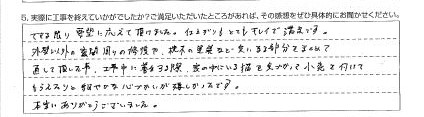 5. 実際に工事を終えていかがでしたか?ご満足いただいたところがあれば、その感想をぜひ具体的にお聞かせください。
できる限り要望に応えて頂けました。仕上がりもとてもキレイで満足です。
外壁以外の玄関周りの修理や、気になる部分てまとめて
直して頂した事、工事中に
もらえたりと細やかな心づかいが嬉しかったです。
本当にありがとうございました。